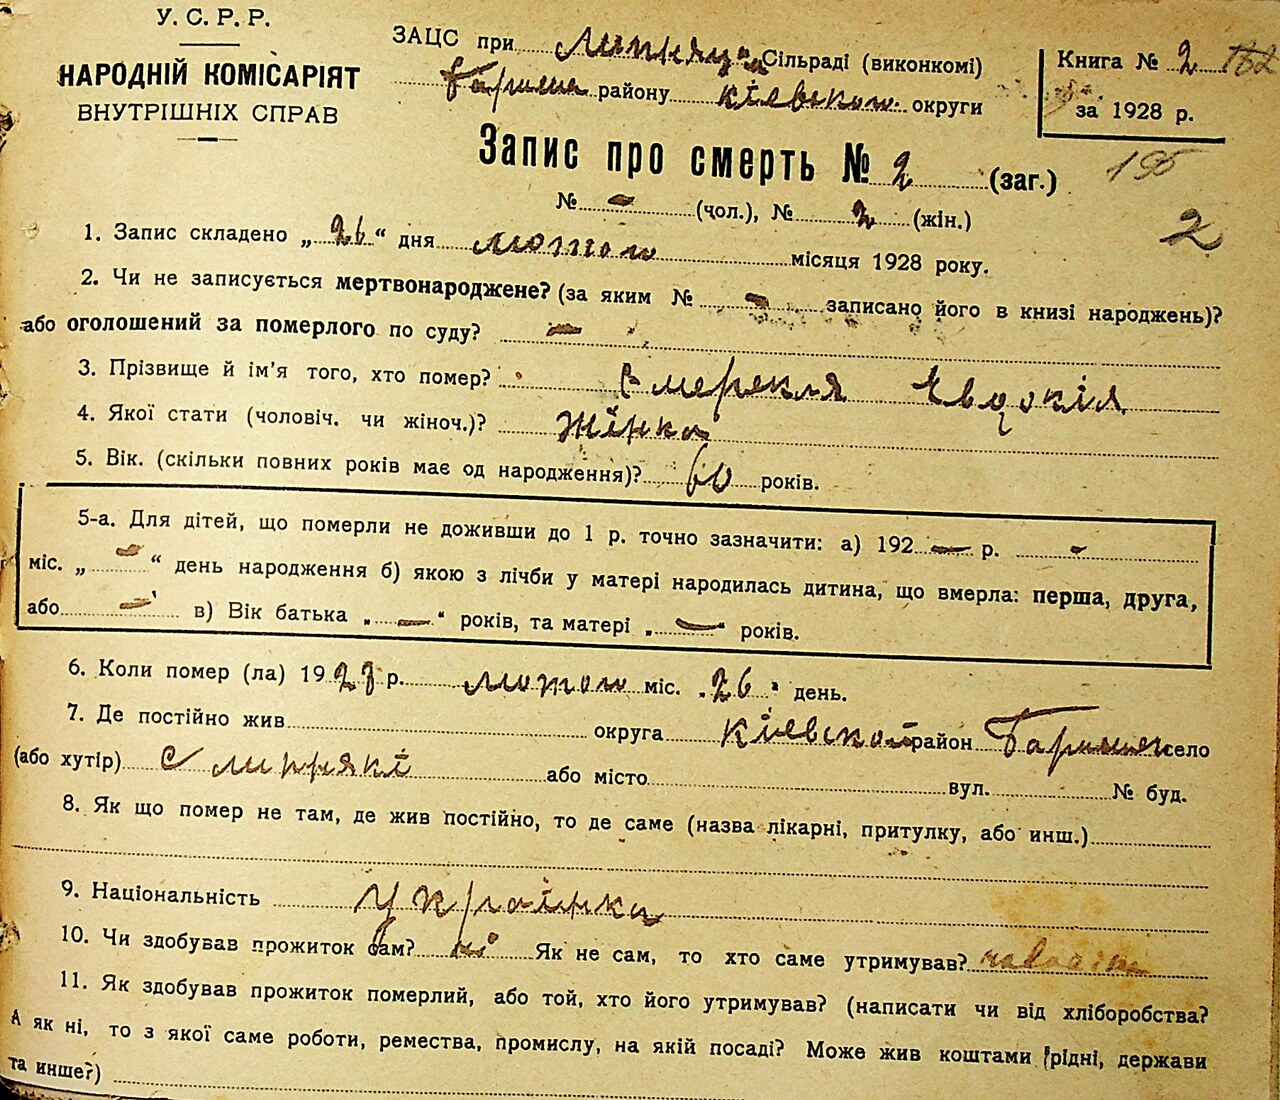 У. С. Р. Р.
НАРОДНІЙ КОМІСАРІЯТ
ВНУТРІШНІХ СПРАВ
ЗАЦС при Сільраді (виконкомі)
району Київської округи
Книга № 2
за 1928 р.
195
2
Запис про смерть № 2 (заг.)
№ - (чол.), № 2 (жін.)
1. Запис складено „ 26 “ дня лютого місяця 1928 року.
2. Чи не записується мертвонароджене? (за яким № - записано його в книзі народжень)?
або оголошений за померлого по суду? -
3. Прізвище й ім'я того, хто помер? Смерекля Євдокія
4. Якої стати (чоловіч. чи жіноч.)? Жінка
5. Вік. (скільки повних років має од народження)? 60 років.
5-а. Для дітей, що померли не доживши до 1 р. точно зазначити: а) 192 - р. -
міс. „ - “ день народження б) якою з лічби у матері народилась дитина, що вмерла: перша, друга,
або - в) Вік батька „ - “ років, та матері „ - “ років.
6. Коли помер (ла) 1928 р. лютого міс. „ 26 “ день.
7. Де постійно жив округа Київской район село
(або хутір) або місто вул. № буд.
8. Як що помер не там, де жив постійно, то де саме (назва лікарні, притулку, або инш.)
9. Національність Українка
10. Чи здобував прожиток сам? ні Як не сам, то хто саме утримував?
11. Як здобував прожиток померлий, або той, хто його утримував? (написати чи від хліборобства?
А як ні, то з якої саме роботи, ремества, промислу, на якій посаді? Може жив коштами рідні, держави
та инше?)